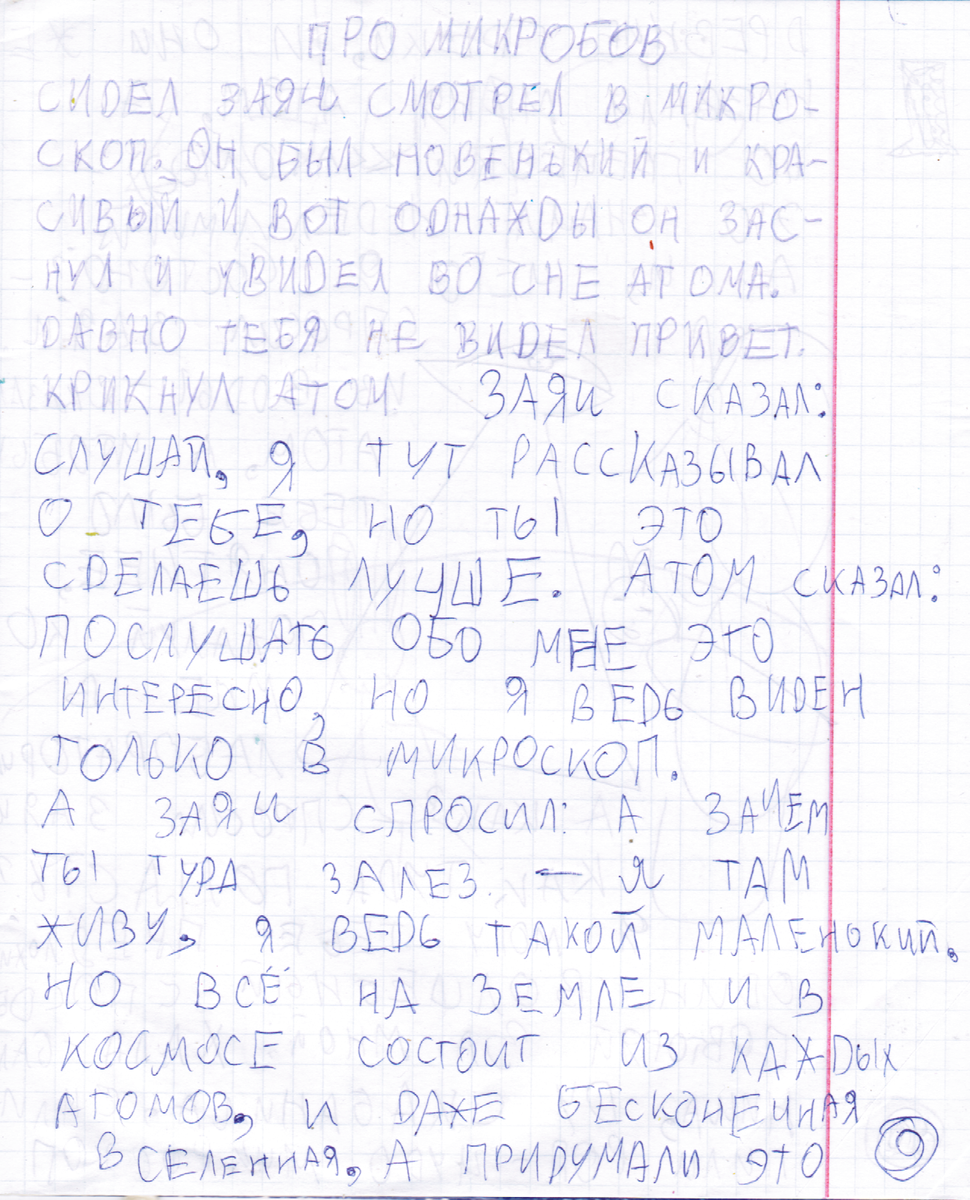 ПРО МИКРОБОВ
СИДЕЛ ЗАЯЦ СМОТРЕЛ В МИКРО-
СКОП. ОН БЫЛ НОВЕНЬКИЙ И КРА-
СИВЫЙ И ВОТ ОДНАЖДЫ ОН ЗАС-
НУЛ И УВИДЕЛ ВО СНЕ АТОМА.
ДАВНО ТЕБЯ НЕ ВИДЕЛ ПРИВЕТ.
КРИКНУЛ АТОМ ЗАЯЦ СКАЗАЛ:
СЛУШАЙ, Я ТУТ РАССКАЗЫВАЛ
О ТЕБЕ, НО ТЫ ЭТО
СДЕЛАЕШЬ ЛУЧШЕ. АТОМ СКАЗАЛ:
ПОСЛУШАТЬ ОБО МНЕ ЭТО
ИНТЕРЕСНО, НО Я ВЕДЬ ВИДЕН
ТОЛЬКО В МИКРОСКОП.
А ЗАЯЦ СПРОСИЛ: А ЗАЧЕМ
ТЫ ТУДА ЗАЛЕЗ. — Я ТАМ
ЖИВУ, Я ВЕДЬ ТАКОЙ МАЛЕНЬКИЙ.
НО ВСЁ НА ЗЕМЛЕ И В
КОСМОСЕ СОСТОИТ ИЗ КАЖДЫХ
АТОМОВ, И ДАЖЕ БЕСКОНЕЧНАЯ
ВСЕЛЕННАЯ, А ПРИДУМАЛИ ЭТО
9